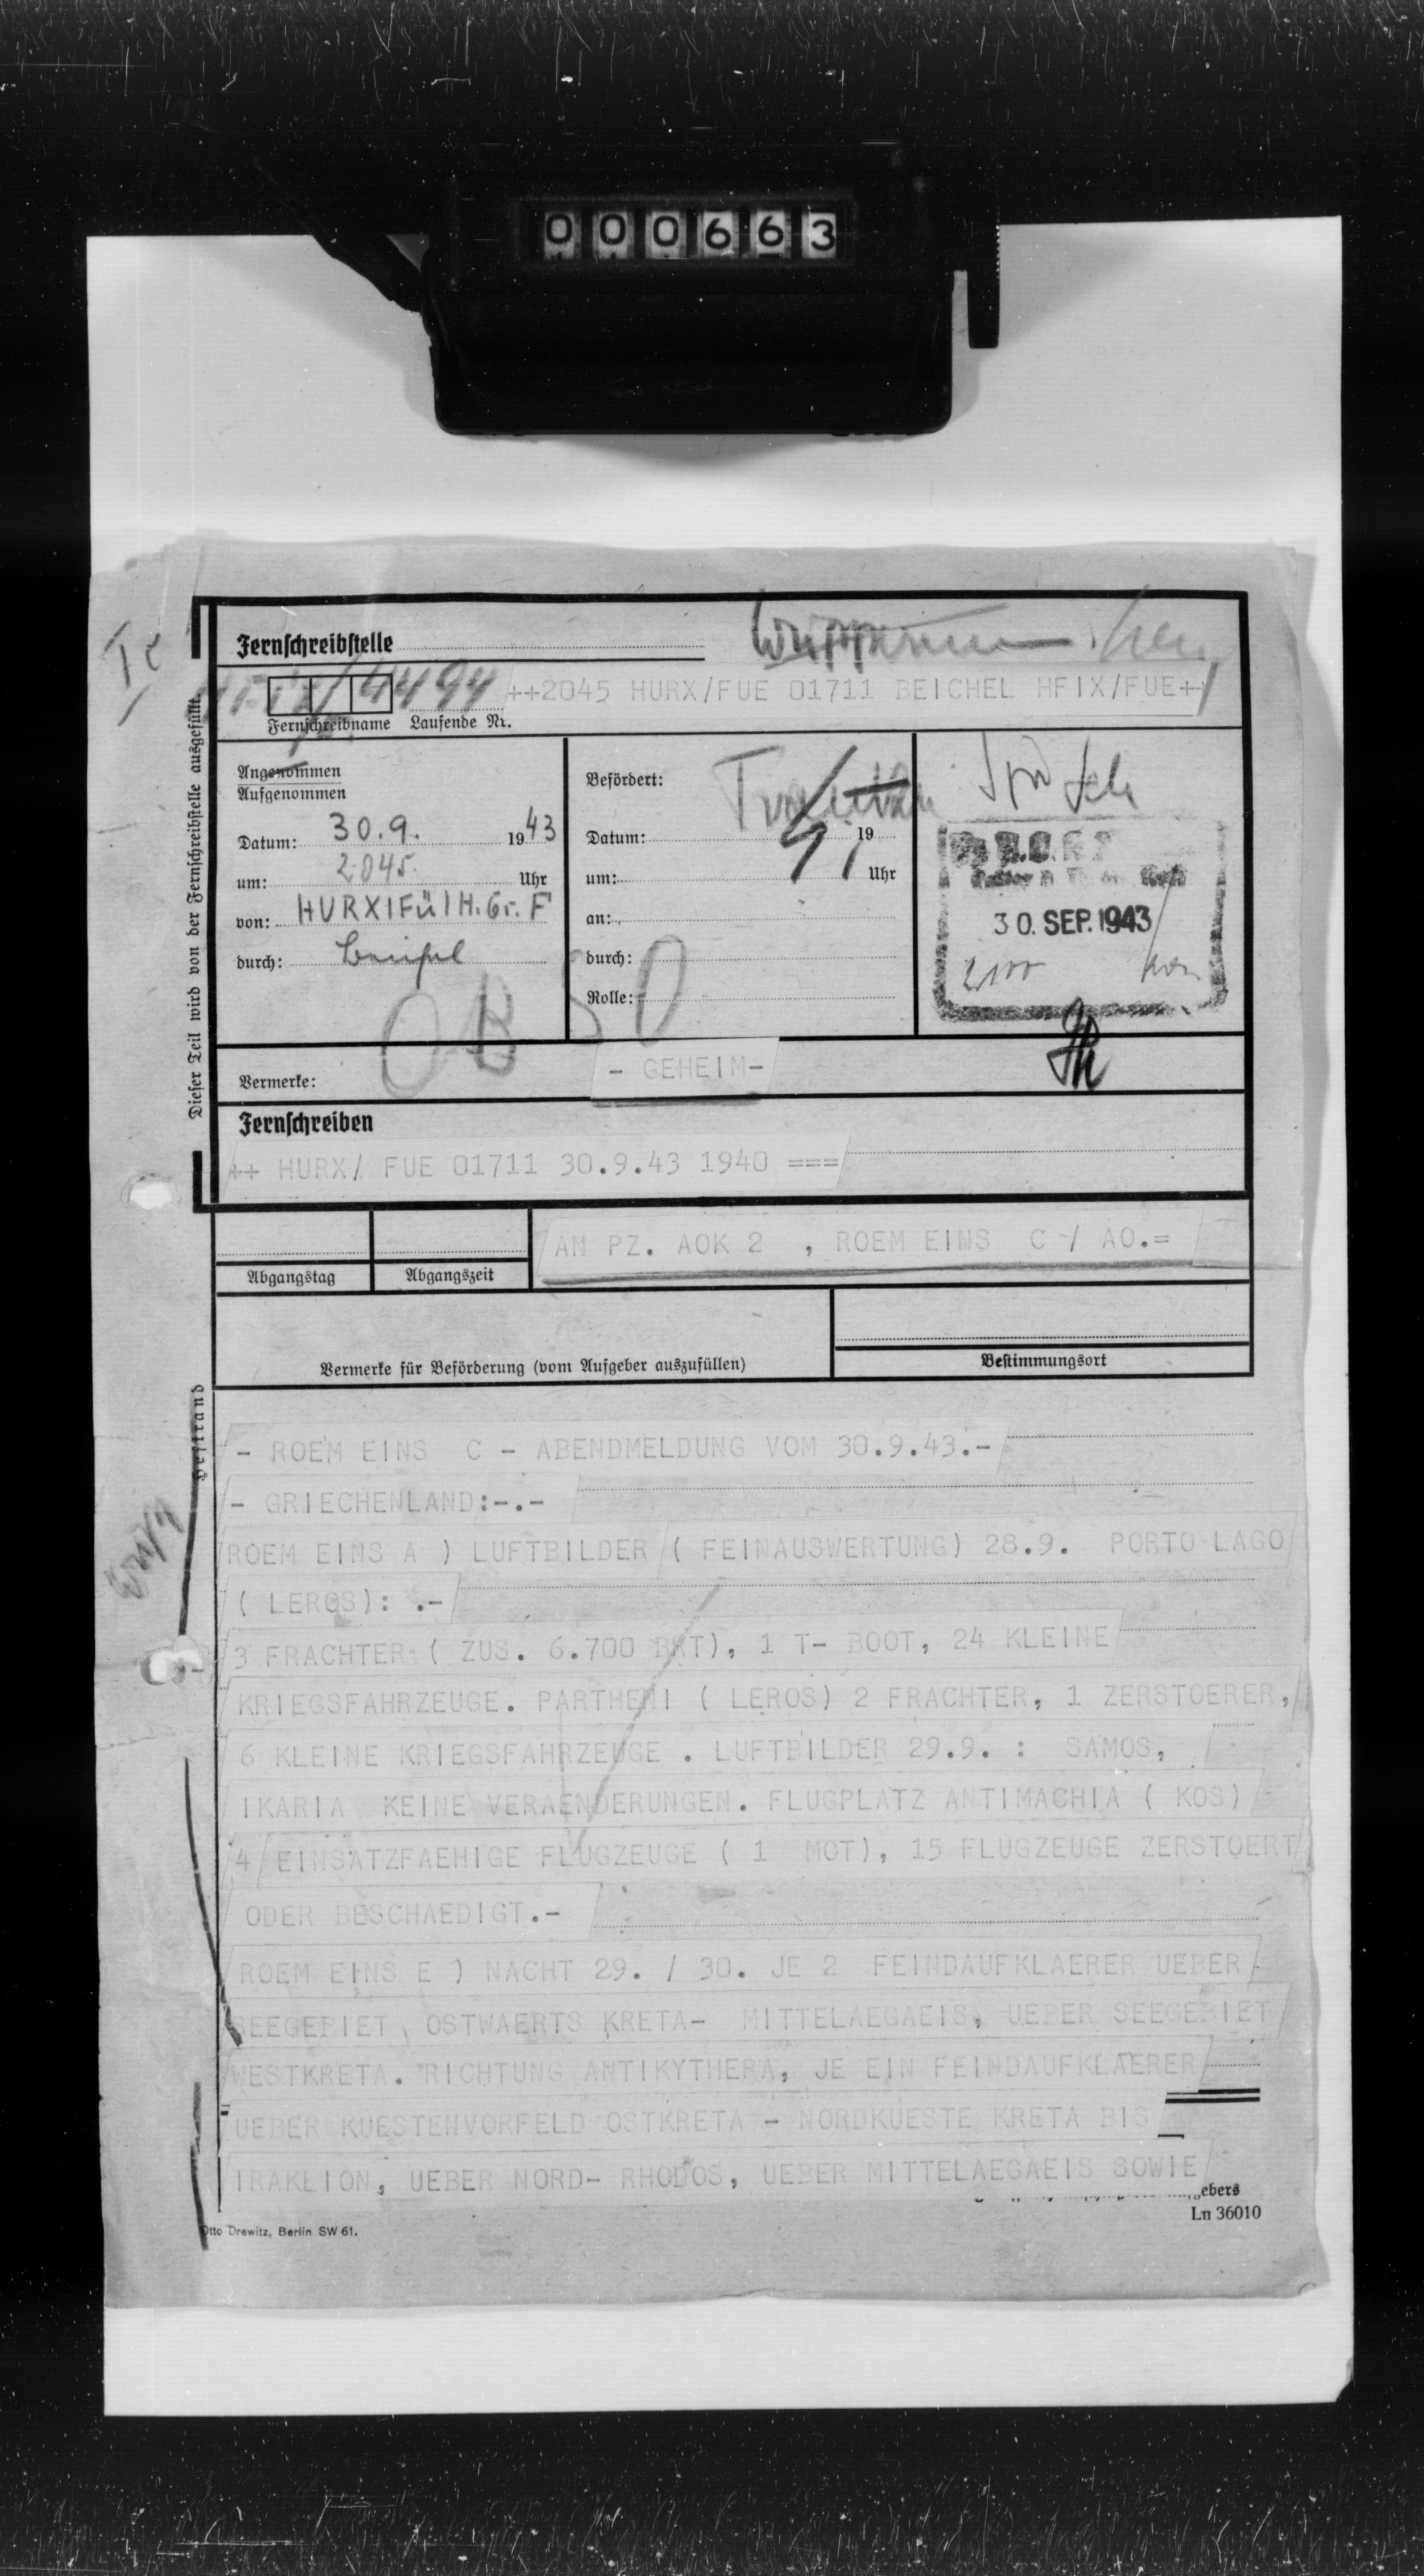 000663
Ic
Fernschreibstelle
4494 ++2045 HURX/FUE 01711 BEICHEL HFIX/FUE++
Fernschreibname Laufende Nr.
Dieser Teil wird von der Fernschreibstelle ausgefüllt.
Angenommen
Aufgenommen
Datum: 30.9. 1943
um: 2045 Uhr
von: HURX/Fü/H.Gr. F
durch:
Befördert:
Datum: 19
um: Uhr
an:
durch:
Rolle:
30. SEP. 1943
Vermerke: - GEHEIM-
Fernschreiben
++ HURX/ FUE 01711 30.9.43 1940 ===
AM PZ. AOK 2 , ROEM EINS C -/ AO.=
Abgangstag Abgangszeit
Vermerke für Beförderung (vom Aufgeber auszufüllen)
Bestimmungsort
Heftrand
- ROEM EINS C - ABENDMELDUNG VOM 30.9.43.-
- GRIECHENLAND:-.-
ROEM EINS A ) LUFTBILDER ( FEINAUSWERTUNG) 28.9. PORTO-LAGO
( LEROS): .-
3 FRACHTER ( ZUS. 6.700 BRT), 1 T- BOOT, 24 KLEINE
KRIEGSFAHRZEUGE. PARTHENI ( LEROS) 2 FRACHTER, 1 ZERSTOERER,
6 KLEINE KRIEGSFAHRZEUGE . LUFTBILDER 29.9. : SAMOS,
IKARIA KEINE VERAENDERUNGEN. FLUGPLATZ ANTIMACHIA ( KOS)
4 EINSATZFAEHIGE FLUGZEUGE ( 1 MOT), 15 FLUGZEUGE ZERSTOERT
ODER BESCHAEDIGT.-
ROEM EINS E ) NACHT 29. / 30. JE 2 FEINDAUFKLAERER UEBER
SEEGEBIET OSTWAERTS KRETA- MITTELAEGAEIS, UEBER SEEGEBIET
WESTKRETA. RICHTUNG ANTIKYTHERA, JE EIN FEINDAUFKLAERER
UEBER KUESTENVORFELD OSTKRETA - NORDKUESTE KRETA BIS
IRAKLION, UEBER NORD- RHODOS, UEBER MITTELAEGAEIS SOWIE
ebers
Otto Drewitz, Berlin SW 61.
Ln 36010